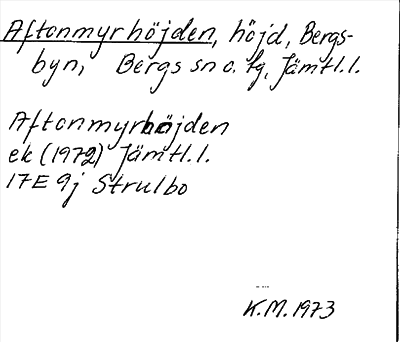 Aftonmyrhöjden, höjd, Bergs-
byn, Bergs sn o. tg, Jämtl.l.
Aftonmyrhöjden
ek (1972) Jämtl.l.
17E 9j Strulbo
K.M. 1973